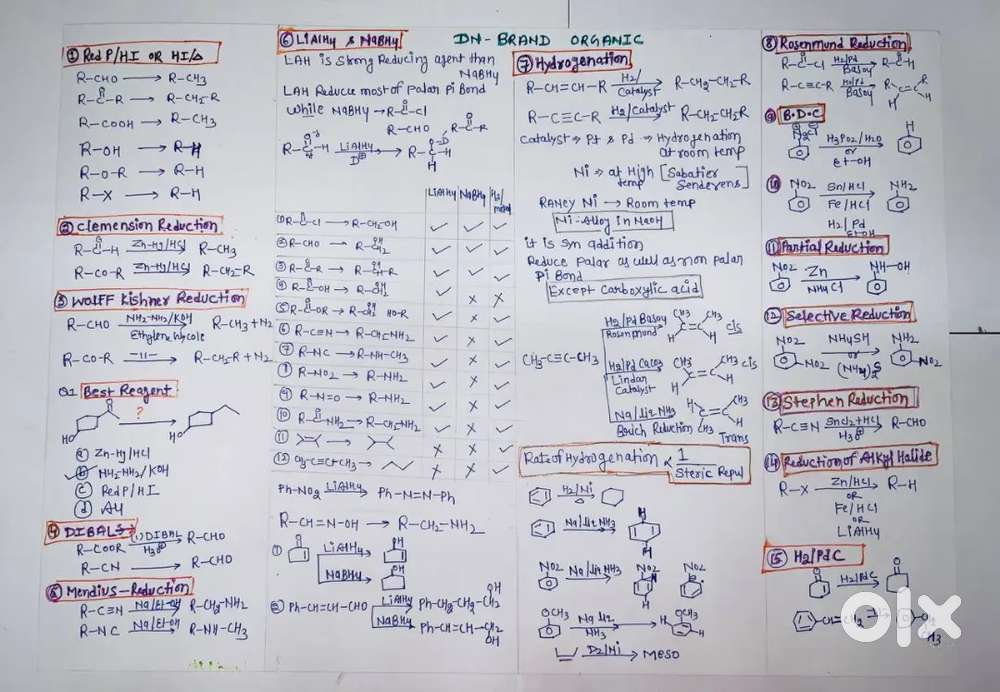 DN- BRAND ORGANIC
① Red P/HI OR HI/Δ
R-CHO → R-CH3
R-C-R → R-CH2-R
R-COOH → R-CH3
R-OH → R-H
R-O-R → R-H
R-X → R-H
② Clemension Reduction
R-C-H Zn-Hg/HCl R-CH3
R-CO-R Zn-Hg/HCl R-CH2-R
③ Wolff Kishner Reduction
R-CHO NH2-NH2/KOH R-CH3+N2
Ethylene Glycole
R-CO-R —11— R-CH2-R+N2
Q1 Best Reagent
O
?
HO
HO
ⓐ Zn-Hg/HCl
ⓑ NH2-NH2/KOH
ⓒ Red P/HI
ⓓ All
④ DIBAL
R-COOR (1) DIBAL R-CHO
H3O⊕
R-CN → R-CHO
⑤ Mendius-Reduction
R-C≡N Na/Et-OH R-CH2-NH2
R-NC Na/Et-OH R-NH-CH3
⑥ LiAlH4 & NaBH4
LAH is Strong Reducing agent than
NaBH4
LAH Reduce most of Polar Pi Bond
while NaBH4 → R-C-Cl
R-CHO R-C-R
R-C-H LiAlH4 R-C-H
LiAlH4 NaBH4 H2/metal
① R-C-Cl → R-CH2-OH ✓ ✓ ✓
② R-CHO → R-CH2 OH ✓ ✓ ✓
③ R-C-R → R-CH-R OH ✓ ✓ ✓
④ R-C-OH → R-CH2 OH ✓ X X
⑤ R-C-OR → R-CH2 OH HO-R ✓ X ✓
⑥ R-C≡N → R-CH2-NH2 ✓ X ✓
⑦ R-NC → R-NH-CH3 ✓ X ✓
R-NO2 → R-NH2 ✓ X ✓
⑨ R-N=O → R-NH2 ✓ X ✓
⑩ R-C-NH2 → R-CH2-NH2 ✓ X ✓
⑪ X X ✓
⑫ CH3-C≡C-CH3 → X X ✓
Ph-NO2 LiAlH4 Ph-N=N-Ph
R-CH=N-OH → R-CH2-NH2
① O LiAlH4 OH
NaBH4 OH
② Ph-CH=CH-CHO LiAlH4 Ph-CH2-CH2-CH2 OH
NaBH4 Ph-CH=CH-CH2 OH
⑦ Hydrogenation
R-CH=CH-R H2/Catalyst R-CH2-CH2-R
R-C≡C-R H2/Catalyst R-CH2CH2-R
Catalyst → Pt & Pd → Hydrogenation
at room temp
Ni → at High temp [Sabatier Senderens]
RANEY Ni → Room temp
Ni-Alloy in NaOH
it is Syn addition
Reduce Polar as well as non polar
Pi Bond
Except Carboxylic acid
CH3-C≡C-CH3
H2/Pd BaSO4 Rosenmund CH3 CH3 H H cis
H2/Pd CaCO3 Lindar Catalyst CH3 CH3 H H cis
Na/Liq NH3 Birch Reduction H CH3 CH3 H Trans
Rate of Hydrogenation ∝ 1
Steric Repul
H2/Ni
Δ
Na/Liq NH3 H H
NO2 Na/Liq NH3 NO2 H H NO2
OCH3 Na Liq NH3 OCH3 H H
D2/Ni → MESO
⑧ Rosenmund Reduction
R-C-Cl H2/Pd BaSO4 R-C-H
R-C≡C-R H2/Pd BaSO4 R R C=C H H
⑨ B·D·C
N2Cl H3PO2/H2O H
or
Et-OH
⑩ NO2 Sn/HCl NH2
Fe/HCl
H2/Pd
Et-OH
⑪ Partial Reduction
NO2 Zn NH-OH
NH4Cl
⑫ Selective Reduction
NO2 NH4SH NH2
NO2 or NO2
(NH4)2S
⑬ Stephen Reduction
R-C≡N SnCl2+HCl R-CHO
H3O⊕
⑭ Reduction of Alkyl Halide
R-X Zn/HCl R-H
OR
Fe/HCl
OR
LiAlH4
⑮ H2/PdC
O H2/PdC O
CH=CH2
olx